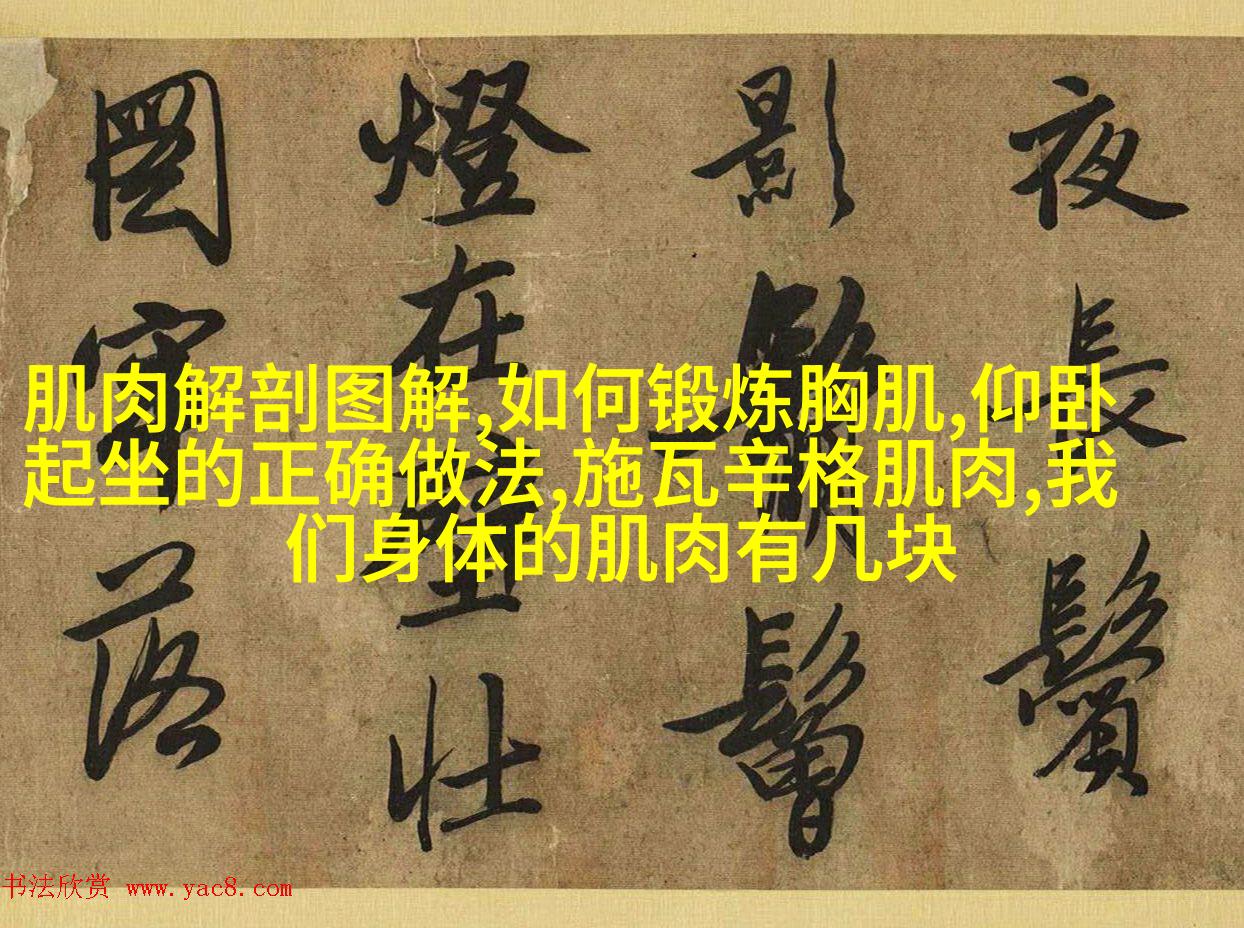 夜長鬢
影鬅鬙
燈在壯
圖落
肌肉解剖图解,如何锻炼胸肌,仰卧
起坐的正确做法,施瓦辛格肌肉,我
们身体的肌肉有几块
书法欣赏 www.yac8.com